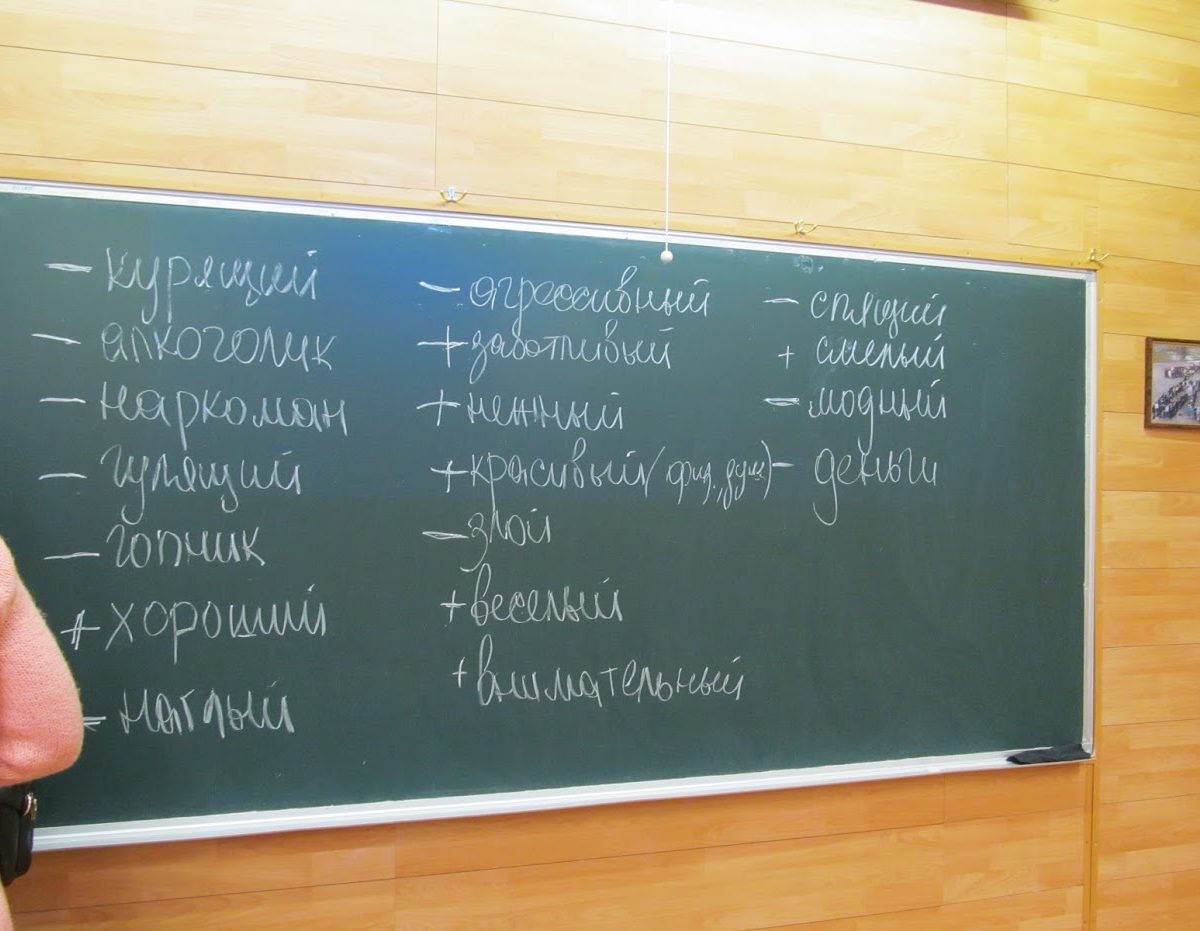 – курящий
– алкоголик
– наркоман
– гулящий
– гопник
+ хороший
– наглый
– агрессивный
+ заботливый
+ нежный
+ красивый (физ., душ)
– злой
+ веселый
+ внимательный
– спящий
+ смелый
– модный
– деньги